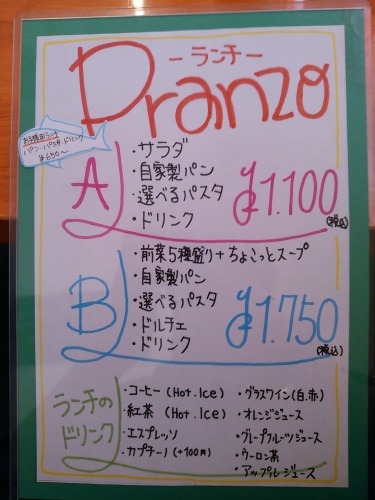 ーランチー
Pranzo
お子様用ランチ
パン・パスタ・ドリンク
¥650～
A
・サラダ
・自家製パン
・選べるパスタ
・ドリンク
¥1.100
(税込)
B
・前菜5種盛り+ちょこっとスープ
・自家製パン
・選べるパスタ
・ドルチェ
・ドリンク
¥1.750
(税込)
ランチの
ドリンク
・コーヒー(Hot.Ice)
・紅茶(Hot.Ice)
・エスプレッソ
・カプチーノ(+100円)
・グラスワイン(白.赤)
・オレンジジュース
・グレープフルーツジュース
・ウーロン茶
・アップルジュース